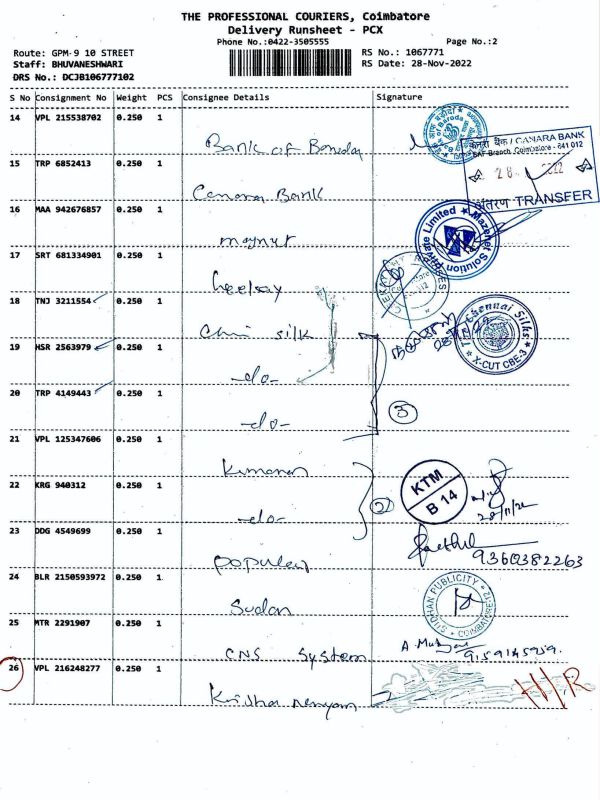 THE PROFESSIONAL COURIERS, Coimbatore
Delivery Runsheet - PCX
Phone No.:0422-3505555
Page No.:2
Route: GPM-9 10 STREET
RS No.: 1067771
Staff: BHUVANESHWARI
RS Date: 28-Nov-2022
DRS No.: DCJB106777102
S No Consignment No Weight PCS Consignee Details Signature
14 VPL 215538702 0.250 1
Bank of Baroda
15 TRP 6852413 0.250 1
केनरा बैंक / CANARA BANK
Coimbatore - 641 012
28 2022
अंतरण TRANSFER
Canara Bank
16 MAA 942676857 0.250 1
Mazenet Solution Private Limited
17 SRT 681334901 0.250 1
18 TNJ 3211554 0.250 1
silk
The Chennai Silks
X-CUT CBE-3
19 HSR 2563979 0.250 1
-do-
20 TRP 4149443 0.250 1
-do-
3
21 VPL 125347606 0.250 1
Kumaran
22 KRG 940312 0.250 1
-do-
2
KTM
B 14
28/11/22
23 DDG 4549699 0.250 1
9360382263
popular
24 BLR 2150593972 0.250 1
SUDHAN PUBLICITY
COIMBATORE-12
Sudan
25 MTR 2291907 0.250 1
CNS System
9159145959.
26 VPL 216248277 0.250 1
H/R